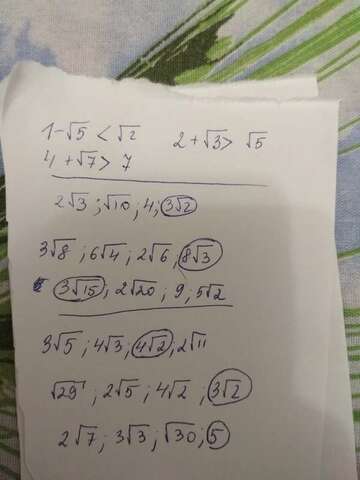 1-√5 < √2 2+√3 > √5
4+√7 > 7
2√3; √10; 4; 3√2
3√8; 6√4; 2√6; 8√3
3√15; 2√20; 9; 5√2
3√5; 4√3; 4√2; 2√11
√29; 2√5; 4√2; 3√2
2√7; 3√3; √30; 5